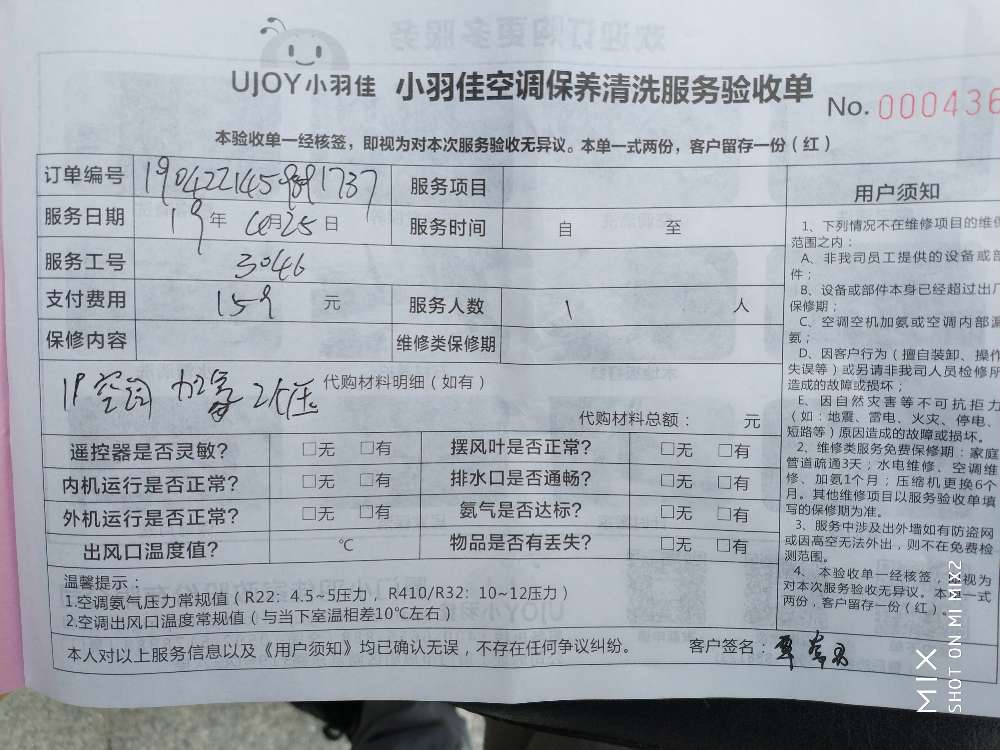 UJOY小羽佳 小羽佳空调保养清洗服务验收单
No. 000436
本验收单一经核签，即视为对本次服务验收无异议。本单一式两份，客户留存一份（红）
订单编号 服务项目
服务日期 19年 4月25日 服务时间 自 至
服务工号 3046
支付费用 159 元 服务人数 1 人
保修内容 维修类保修期
1P空调 加氨 2个压 代购材料明细（如有）
代购材料总额： 元
遥控器是否灵敏？ □无 □有 摆风叶是否正常？ □无 □有
内机运行是否正常？ □无 □有 排水口是否通畅？ □无 □有
外机运行是否正常？ □无 □有 氨气是否达标？ □无 □有
出风口温度值？ ℃ 物品是否有丢失？ □无 □有
温馨提示：
1.空调氨气压力常规值（R22：4.5~5压力，R410/R32：10~12压力）
2.空调出风口温度常规值（与当下室温相差10℃左右）
本人对以上服务信息以及《用户须知》均已确认无误，不存在任何争议纠纷。 客户签名：
用户须知
1、下列情况不在维修项目的维保
范围之内：
A、非我司员工提供的设备或部
件；
B、设备或部件本身已经超过出厂
保修期；
C、空调空机加氨或空调内部漏
氨；
D、因客户行为（擅自装卸、操作
失误等）或另请非我司人员检修所
造成的故障或损坏；
E、因自然灾害等不可抗拒力
（如：地震、雷电、火灾、停电、
短路等）原因造成的故障或损坏。
2、维修类服务免费保修期：家庭
管道疏通3天；水电维修、空调维
修、加氨1个月；压缩机更换6个
月。其他维修项目以服务验收单填
写的保修期为准。
3、服务中涉及出外墙如有防盗网
或因高空无法外出，则不在免费检
测范围。
4、本验收单一经核签，视为
对本次服务验收无异议。本一式
两份，客户留存一份（红）。
MIX
SHOT ON MI MIX2